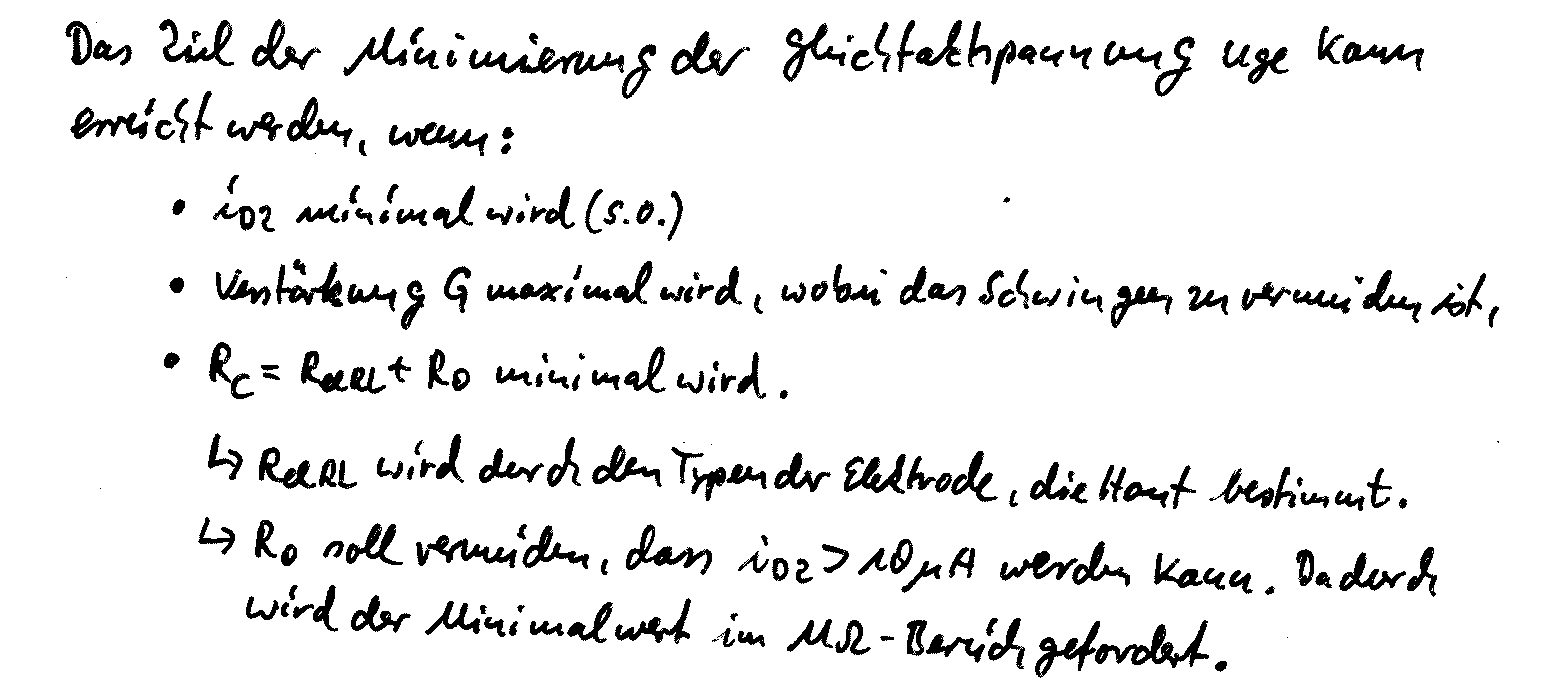 Das Ziel der Minimierung der Gleichtaktspannung uge kann
erreicht werden, wenn:
• iD2 minimal wird (s.o.)
• Verstärkung G maximal wird, wobei das Schwingen zu vermeiden ist,
• RC = RdRL + RO minimal wird.
↳ RdRL wird durch den Typen der Elektrode, die Haut bestimmt.
↳ RO soll vermeiden, dass iD2 > 10µA werden kann. Dadurch
wird der Minimalwert im MΩ-Bereich gefordert.